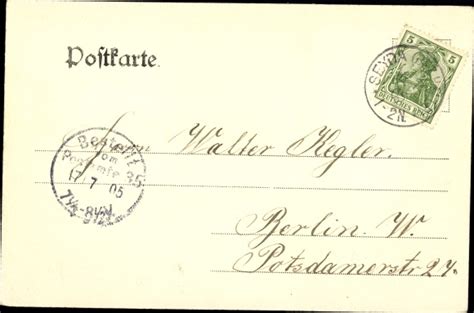 Postkarte.
5 5
DEUTSCHES REICH
SEYDA
1-2N.
Bestellt
vom
Postamte 35
17.7.05
7½-8½V.
Herrn Walter Kegler.
Berlin. W.
Potsdamerstr 27.